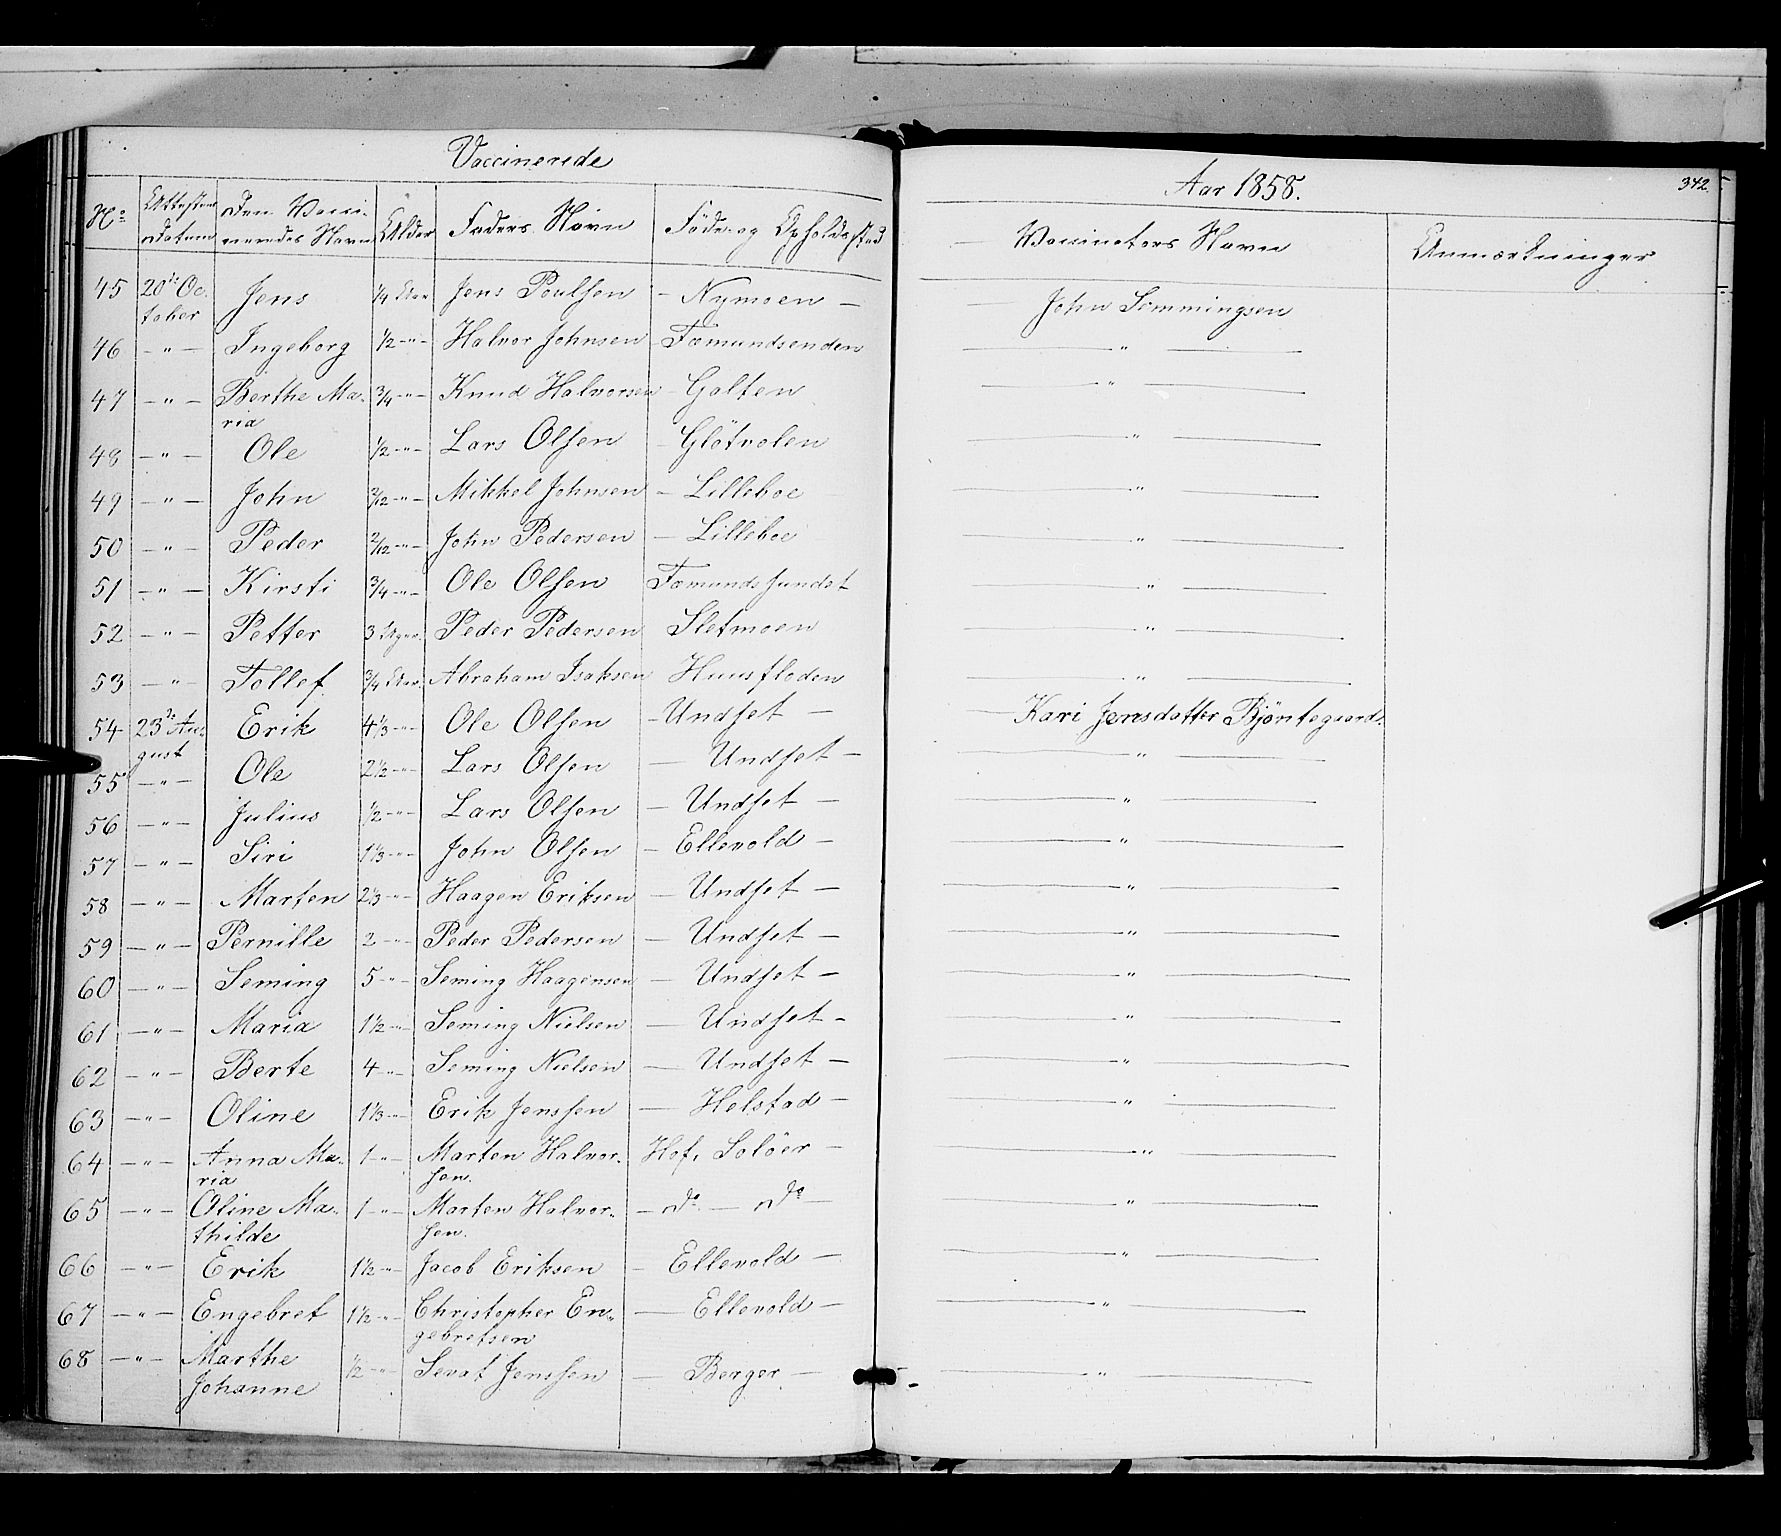 Vaccinerede
Aar 1858.
342.
No Attestens Datum Den Vaccineredes Navn Alder Faders Navn Föde- og Opholdssted Vaccinators Navn Anmærkninger
45 20de October Jens 1/4 Aar Jens Poulsen - Nymoen - John Semmingsen
46 - " - Ingeborg 1/2 - " - Halvor Johnsen Fæmundsenden - " -
47 - " - Berthe Maria 3/4 - " - Knud Halvorsen - Galten - " -
48 - " - Ole 1/2 - " - Lars Olsen - Glötvolen - " -
49 - " - John 3/12 - " - Mikkel Johnsen - Lilleboe - " -
50 - " - Peder 2/12 - " - John Pedersen - Lilleboe - " -
51 - " - Kirsti 3/4 - " - Ole Olsen Fæmundssundet - " -
52 - " - Petter 3 Uger Peder Pedersen Sletmoen - " -
53 - " - Tollef 3/4 Aar Abraham Isaksen Huusfloden - " -
54 23de August Erik 4 1/3 - " - Ole Olsen - Undset - Kari Jensdatter Bjöntegaard
55 - " - Ole 2 1/2 - " - Lars Olsen - Undset - - " -
56 - " - Julius 1/2 - " - Lars Olsen - Undset - - " -
57 - " - Siri 1 1/3 - " - John Olsen - Ellevold - - " -
58 - " - Marten 2 1/3 - " - Haagen Eriksen - Undset - - " -
59 - " - Pernille 2 - " - Peder Pedersen - Undset - - " -
60 - " - Seming 5 - " - Seming Haagensen - Undset - - " -
61 - " - Maria 1 1/2 - " - Seming Nielsen - Undset - - " -
62 - " - Berte 4 - " - Seming Nielsen - Undset - - " -
63 - " - Oline 1 1/3 - " - Erik Jenssen - Helstad - - " -
64 - " - Anna Maria 1 - " - Marten Halvorsen. Hof, Solöer - - " -
65 - " - Oline Mathilde 1 - " - Marten Halvorsen. - do - do - - " -
66 - " - Erik 1 1/2 - " - Jacob Eriksen - Ellevold - - " -
67 - " - Engebret 1 1/2 - " - Christopher Engebretsen - Ellevold - - " -
68 - " - Marthe Johanne 1/2 - " - Sevat Jenssen - Berger - - " -